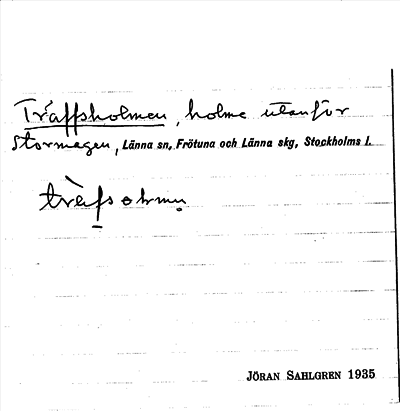 Träffsholmen, holme utanför
Stormagen, Länna sn, Frötuna och Länna skg, Stockholms l.
JÖRAN SAHLGREN 1935